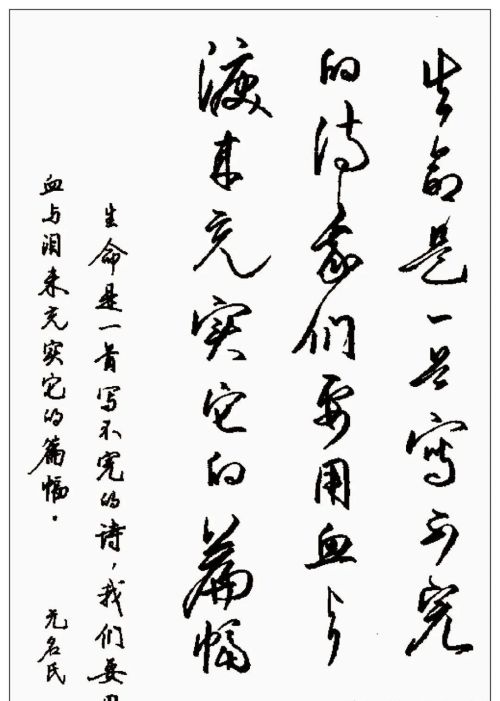 生命是一首寫不完
的诗我们要用血与
淚来充实它的篇幅
生命是一首写不完的诗，我们要
血与泪来充实它的篇幅。 无名氏